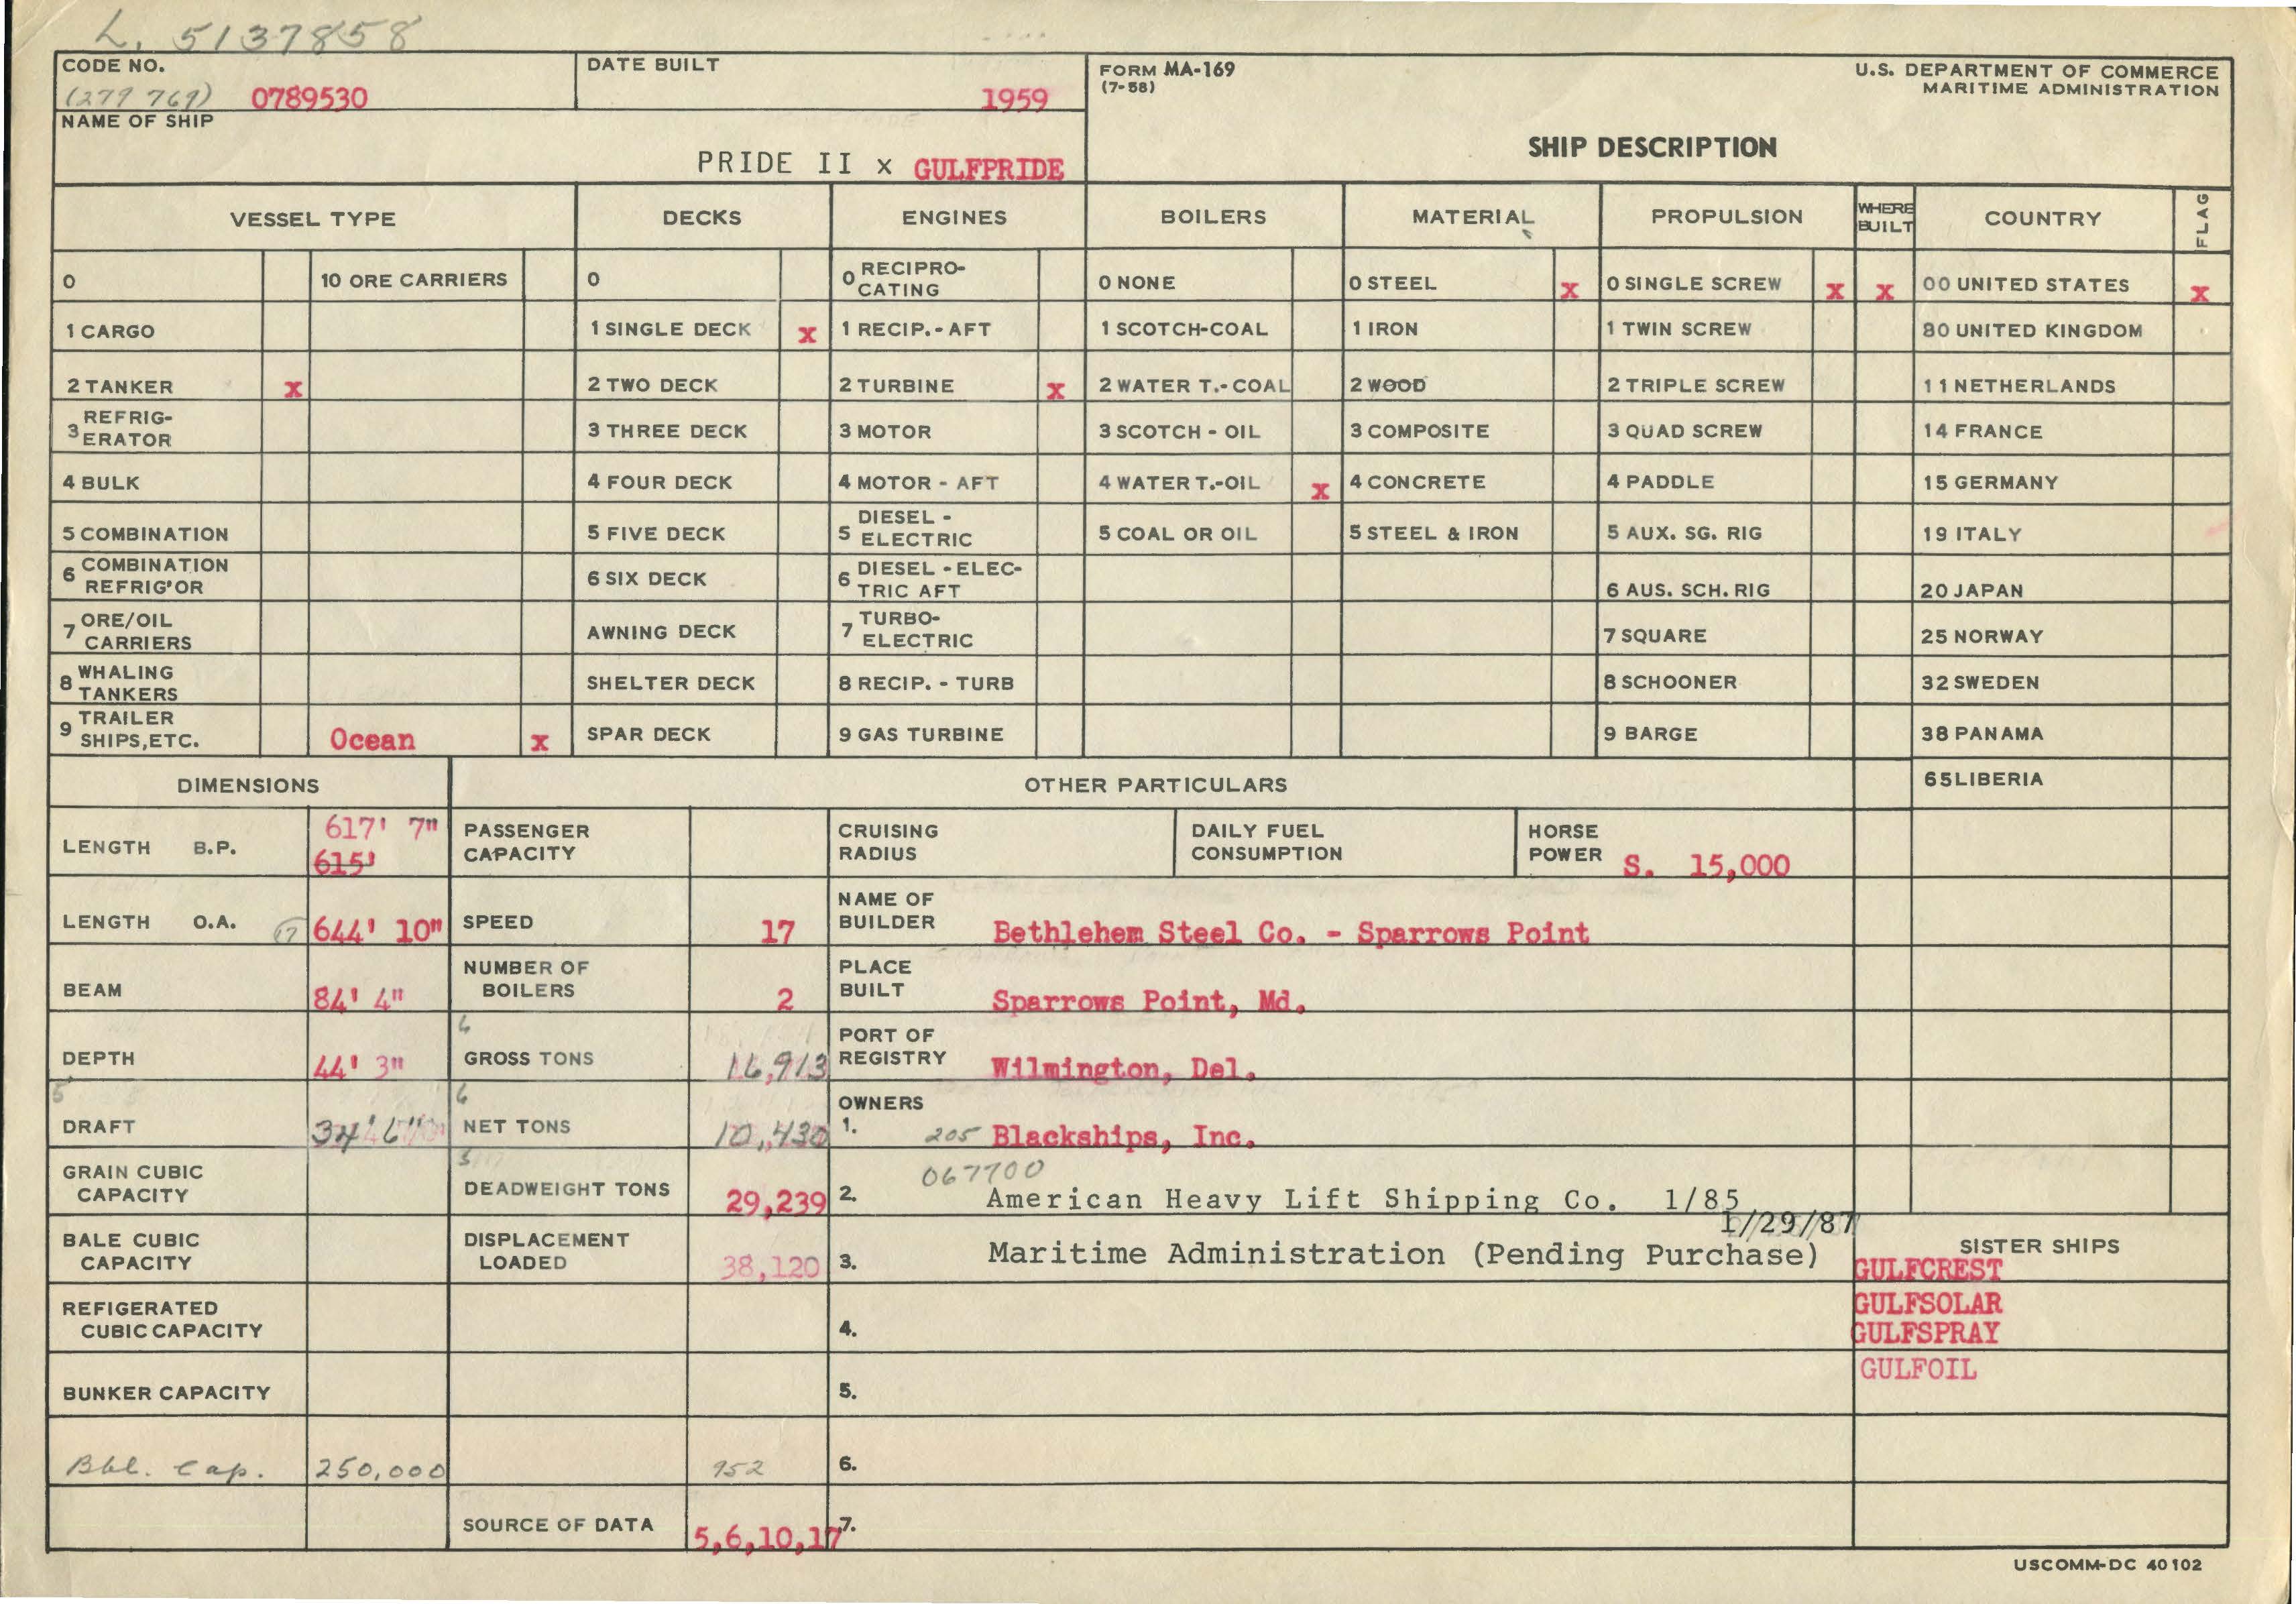 L. 5137858
CODE NO.
(279 769) 0789530
DATE BUILT
1959
FORM MA-169
(7-58)
U.S. DEPARTMENT OF COMMERCE
MARITIME ADMINISTRATION
NAME OF SHIP
PRIDE II x GULFPRIDE
SHIP DESCRIPTION
VESSEL TYPE DECKS ENGINES BOILERS MATERIAL PROPULSION WHERE BUILT COUNTRY FLAG
0 10 ORE CARRIERS 0 0 RECIPRO-CATING 0 NONE 0 STEEL x 0 SINGLE SCREW x x 00 UNITED STATES x
1 CARGO 1 SINGLE DECK x 1 RECIP.-AFT 1 SCOTCH-COAL 1 IRON 1 TWIN SCREW 80 UNITED KINGDOM
2 TANKER x 2 TWO DECK 2 TURBINE x 2 WATER T.-COAL 2 WOOD 2 TRIPLE SCREW 11 NETHERLANDS
3 REFRIG-ERATOR 3 THREE DECK 3 MOTOR 3 SCOTCH - OIL 3 COMPOSITE 3 QUAD SCREW 14 FRANCE
4 BULK 4 FOUR DECK 4 MOTOR - AFT 4 WATER T.-OIL x 4 CONCRETE 4 PADDLE 15 GERMANY
5 COMBINATION 5 FIVE DECK 5 DIESEL - ELECTRIC 5 COAL OR OIL 5 STEEL & IRON 5 AUX. SG. RIG 19 ITALY
6 COMBINATION REFRIG'OR 6 SIX DECK 6 DIESEL - ELEC-TRIC AFT 6 AUS. SCH. RIG 20 JAPAN
7 ORE/OIL CARRIERS AWNING DECK 7 TURBO-ELECTRIC 7 SQUARE 25 NORWAY
8 WHALING TANKERS SHELTER DECK 8 RECIP. - TURB 8 SCHOONER 32 SWEDEN
9 TRAILER SHIPS,ETC. Ocean x SPAR DECK 9 GAS TURBINE 9 BARGE 38 PANAMA
DIMENSIONS OTHER PARTICULARS 65 LIBERIA
LENGTH B.P. 617' 7" 615' PASSENGER CAPACITY CRUISING RADIUS DAILY FUEL CONSUMPTION HORSE POWER S. 15,000
LENGTH O.A. 17 644' 10" SPEED 17 NAME OF BUILDER Bethlehem Steel Co. - Sparrows Point
BEAM 84' 4" NUMBER OF BOILERS 2 PLACE BUILT Sparrows Point, Md.
DEPTH 44' 3" 6 GROSS TONS 16,913 PORT OF REGISTRY Wilmington, Del.
5 DRAFT 34' 6" 6 NET TONS 10,430 OWNERS 1. 205 Blackships, Inc.
GRAIN CUBIC CAPACITY 5 DEADWEIGHT TONS 29,239 2. 067700 American Heavy Lift Shipping Co. 1/85
1/29/87
BALE CUBIC CAPACITY DISPLACEMENT LOADED 38,120 3. Maritime Administration (Pending Purchase)
SISTER SHIPS
GULFCREST
REFIGERATED CUBIC CAPACITY 4.
GULFSOLAR
GULFSPRAY
BUNKER CAPACITY 5.
GULFOIL
Bbl. Cap. 250,000 952 6.
SOURCE OF DATA 5,6,10,17 7.
USCOMM-DC 40102